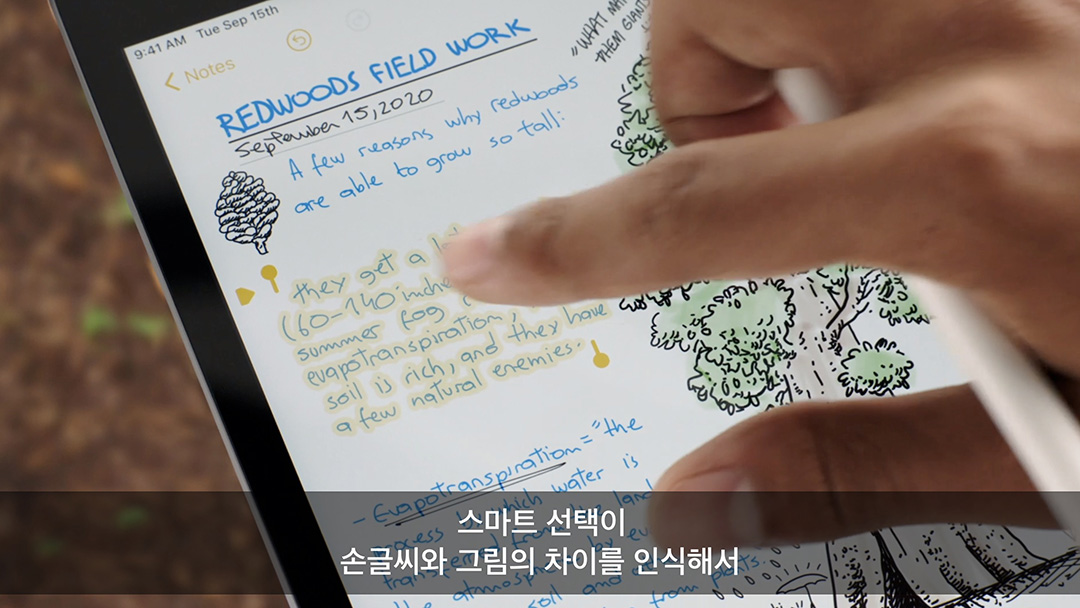 9:41 AM Tue Sep 15th
Notes
REDWOODS FIELD WORK
September 15, 2020
A few reasons why redwoods
are able to grow so tall:
"WHAT
THEM GIANT
they get a
(60-140 inche
summer fog
evapotranspiration,
soil is rich, and they have
a few natural enemies.
- Evapotranspiration = "the
process by which water is
the land
the atmosphere by
soil and
from plants.
스마트 선택이
손글씨와 그림의 차이를 인식해서